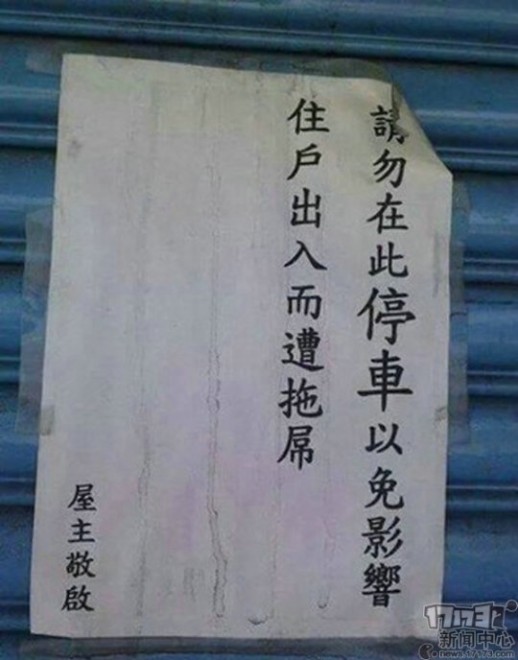 請勿在此停車以免影響
住戶出入而遭拖屌
屋主敬啟
17173
新闻中心
news.17173.com